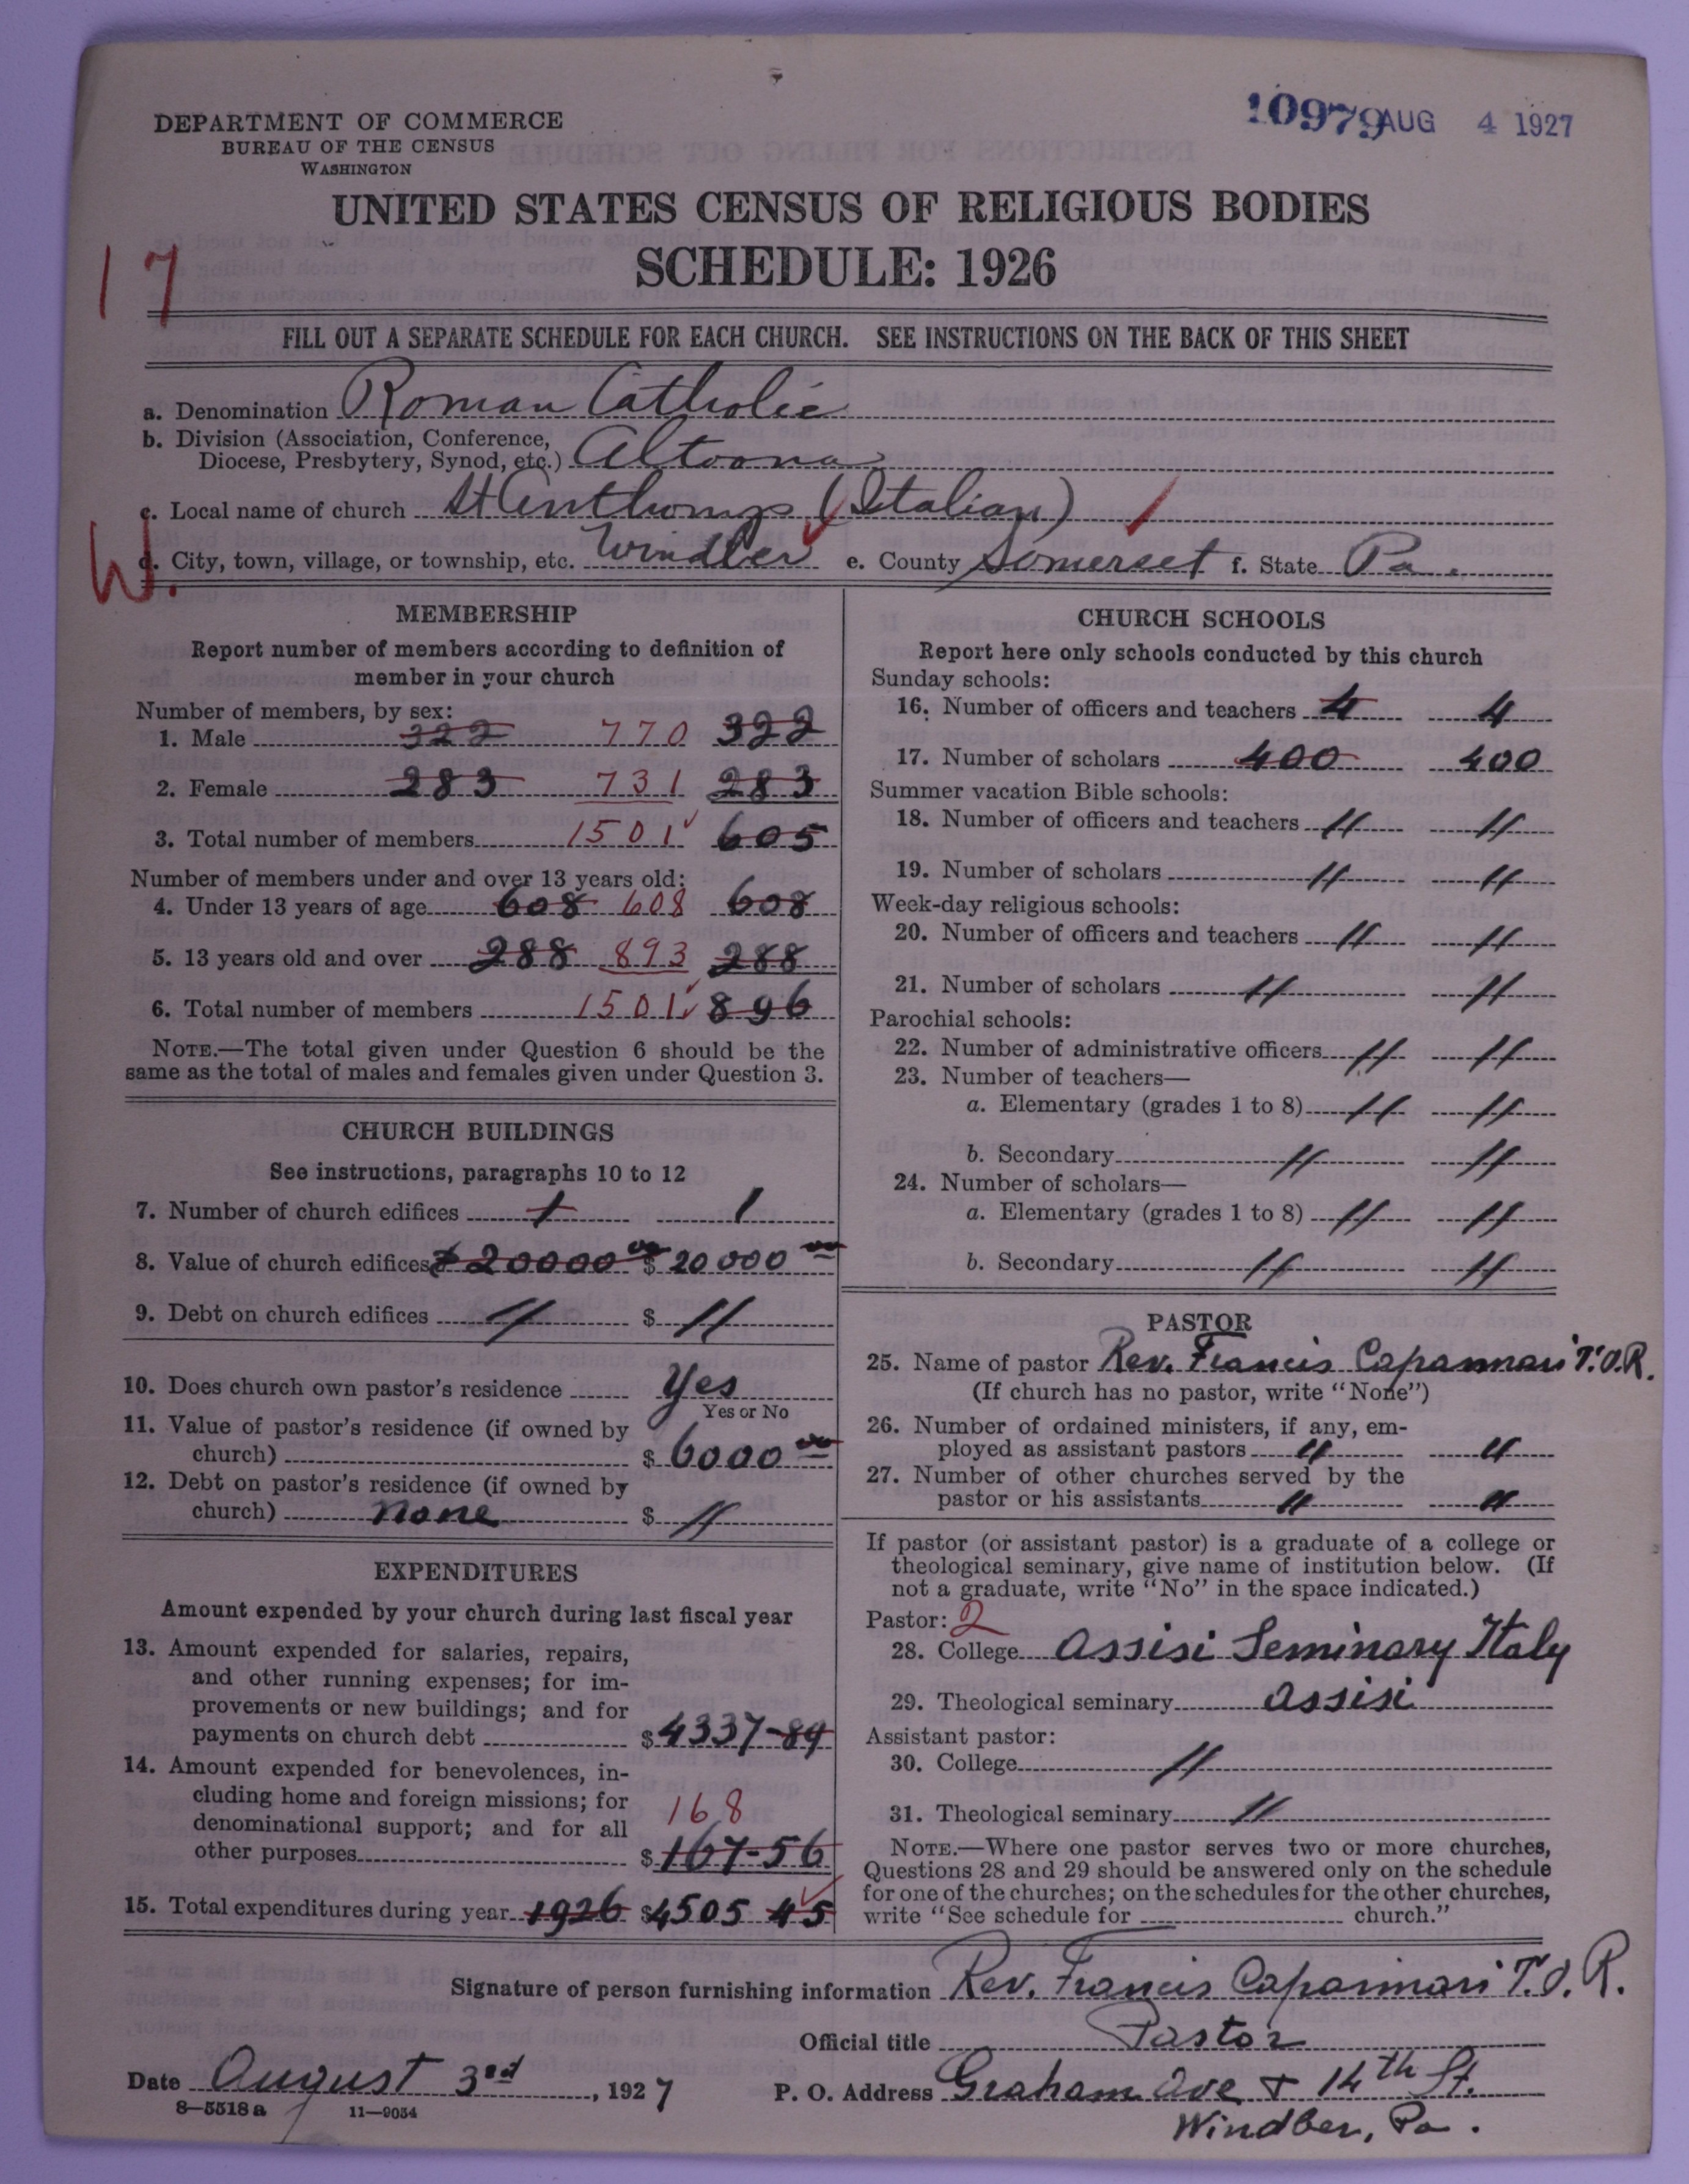 DEPARTMENT OF COMMERCE
BUREAU OF THE CENSUS
WASHINGTON
10979 AUG 4 1927
UNITED STATES CENSUS OF RELIGIOUS BODIES
SCHEDULE: 1926
17
FILL OUT A SEPARATE SCHEDULE FOR EACH CHURCH. SEE INSTRUCTIONS ON THE BACK OF THIS SHEET
a. Denomination Roman Catholic
b. Division (Association, Conference,
Diocese, Presbytery, Synod, etc.) Altoona
c. Local name of church St Anthonys (Italian)
W.
d. City, town, village, or township, etc. Windber e. County Somerset f. State Pa.
MEMBERSHIP
Report number of members according to definition of
member in your church
Number of members, by sex:
1. Male 322 770 322
2. Female 283 731 283
3. Total number of members 1501 605
Number of members under and over 13 years old:
4. Under 13 years of age 608 608 608
5. 13 years old and over 288 893 288
6. Total number of members 1501 896
NOTE.—The total given under Question 6 should be the
same as the total of males and females given under Question 3.
CHURCH BUILDINGS
See instructions, paragraphs 10 to 12
7. Number of church edifices 1 1
8. Value of church edifices $20000 00 $ 20000 00
9. Debt on church edifices // $ //
10. Does church own pastor's residence Yes
Yes or No
11. Value of pastor's residence (if owned by
church) $ 6000 00
12. Debt on pastor's residence (if owned by
church) none $ //
EXPENDITURES
Amount expended by your church during last fiscal year
13. Amount expended for salaries, repairs,
and other running expenses; for im-
provements or new buildings; and for
payments on church debt $ 4337-89
14. Amount expended for benevolences, in-
cluding home and foreign missions; for
denominational support; and for all
168
other purposes $ 167-56
15. Total expenditures during year 1926 $4505 45
CHURCH SCHOOLS
Report here only schools conducted by this church
Sunday schools:
16. Number of officers and teachers 4 4
17. Number of scholars 400 400
Summer vacation Bible schools:
18. Number of officers and teachers // //
19. Number of scholars // //
Week-day religious schools:
20. Number of officers and teachers // //
21. Number of scholars // //
Parochial schools:
22. Number of administrative officers // //
23. Number of teachers—
a. Elementary (grades 1 to 8) // //
b. Secondary // //
24. Number of scholars—
a. Elementary (grades 1 to 8) // //
b. Secondary // //
PASTOR
25. Name of pastor Rev. Francis Capannari T.O.R.
(If church has no pastor, write "None")
26. Number of ordained ministers, if any, em-
ployed as assistant pastors // //
27. Number of other churches served by the
pastor or his assistants // //
If pastor (or assistant pastor) is a graduate of a college or
theological seminary, give name of institution below. (If
not a graduate, write "No" in the space indicated.)
Pastor: 2
28. College Assisi Seminary Italy
29. Theological seminary Assisi
Assistant pastor:
30. College //
31. Theological seminary //
NOTE.—Where one pastor serves two or more churches,
Questions 28 and 29 should be answered only on the schedule
for one of the churches; on the schedules for the other churches,
write "See schedule for church."
Signature of person furnishing information Rev. Francis Capannari T.O.R.
Official title Pastor
Date August 3rd, 1927 P. O. Address Graham Ave & 14th St.
8—5518a 11—9034
Windber, Pa.